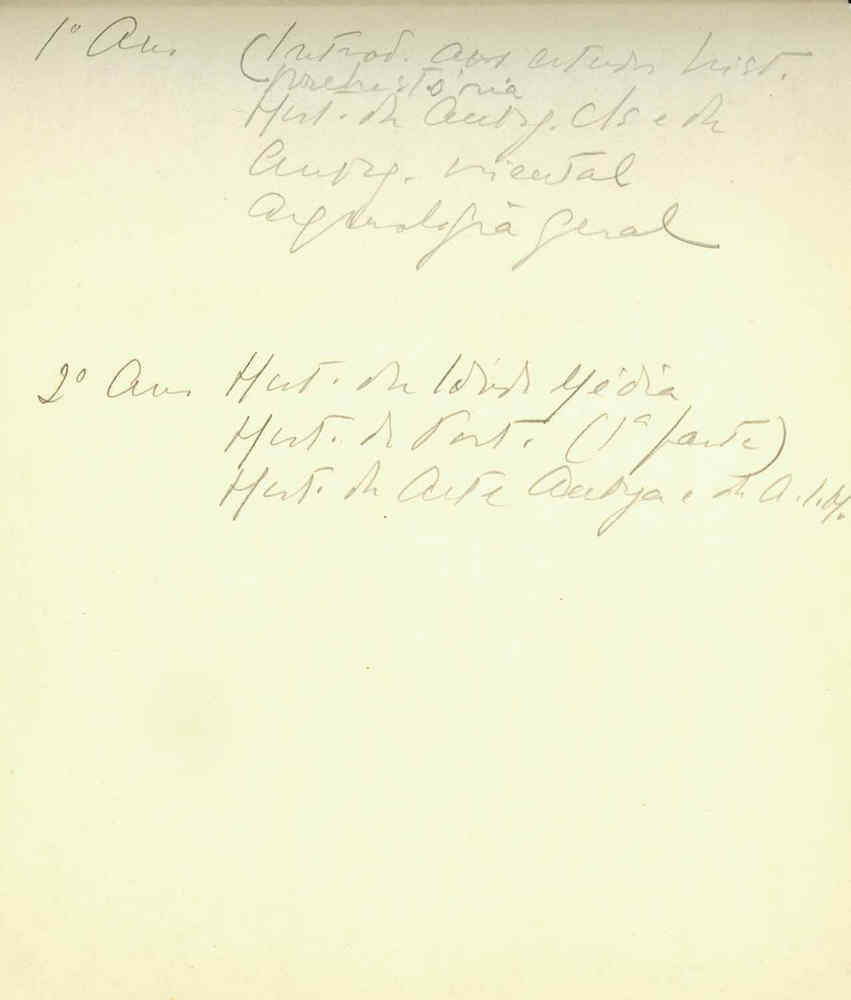 1º Ano (Introd. aos estudos hist.
prehistória
Hist. da Antig. Cls e da
Antig. oriental
Arqueologia geral
2º Ano Hist. da Idade Média
Hist. de Port. (1ª parte)
Hist. da Arte Antiga e da A. I. M.